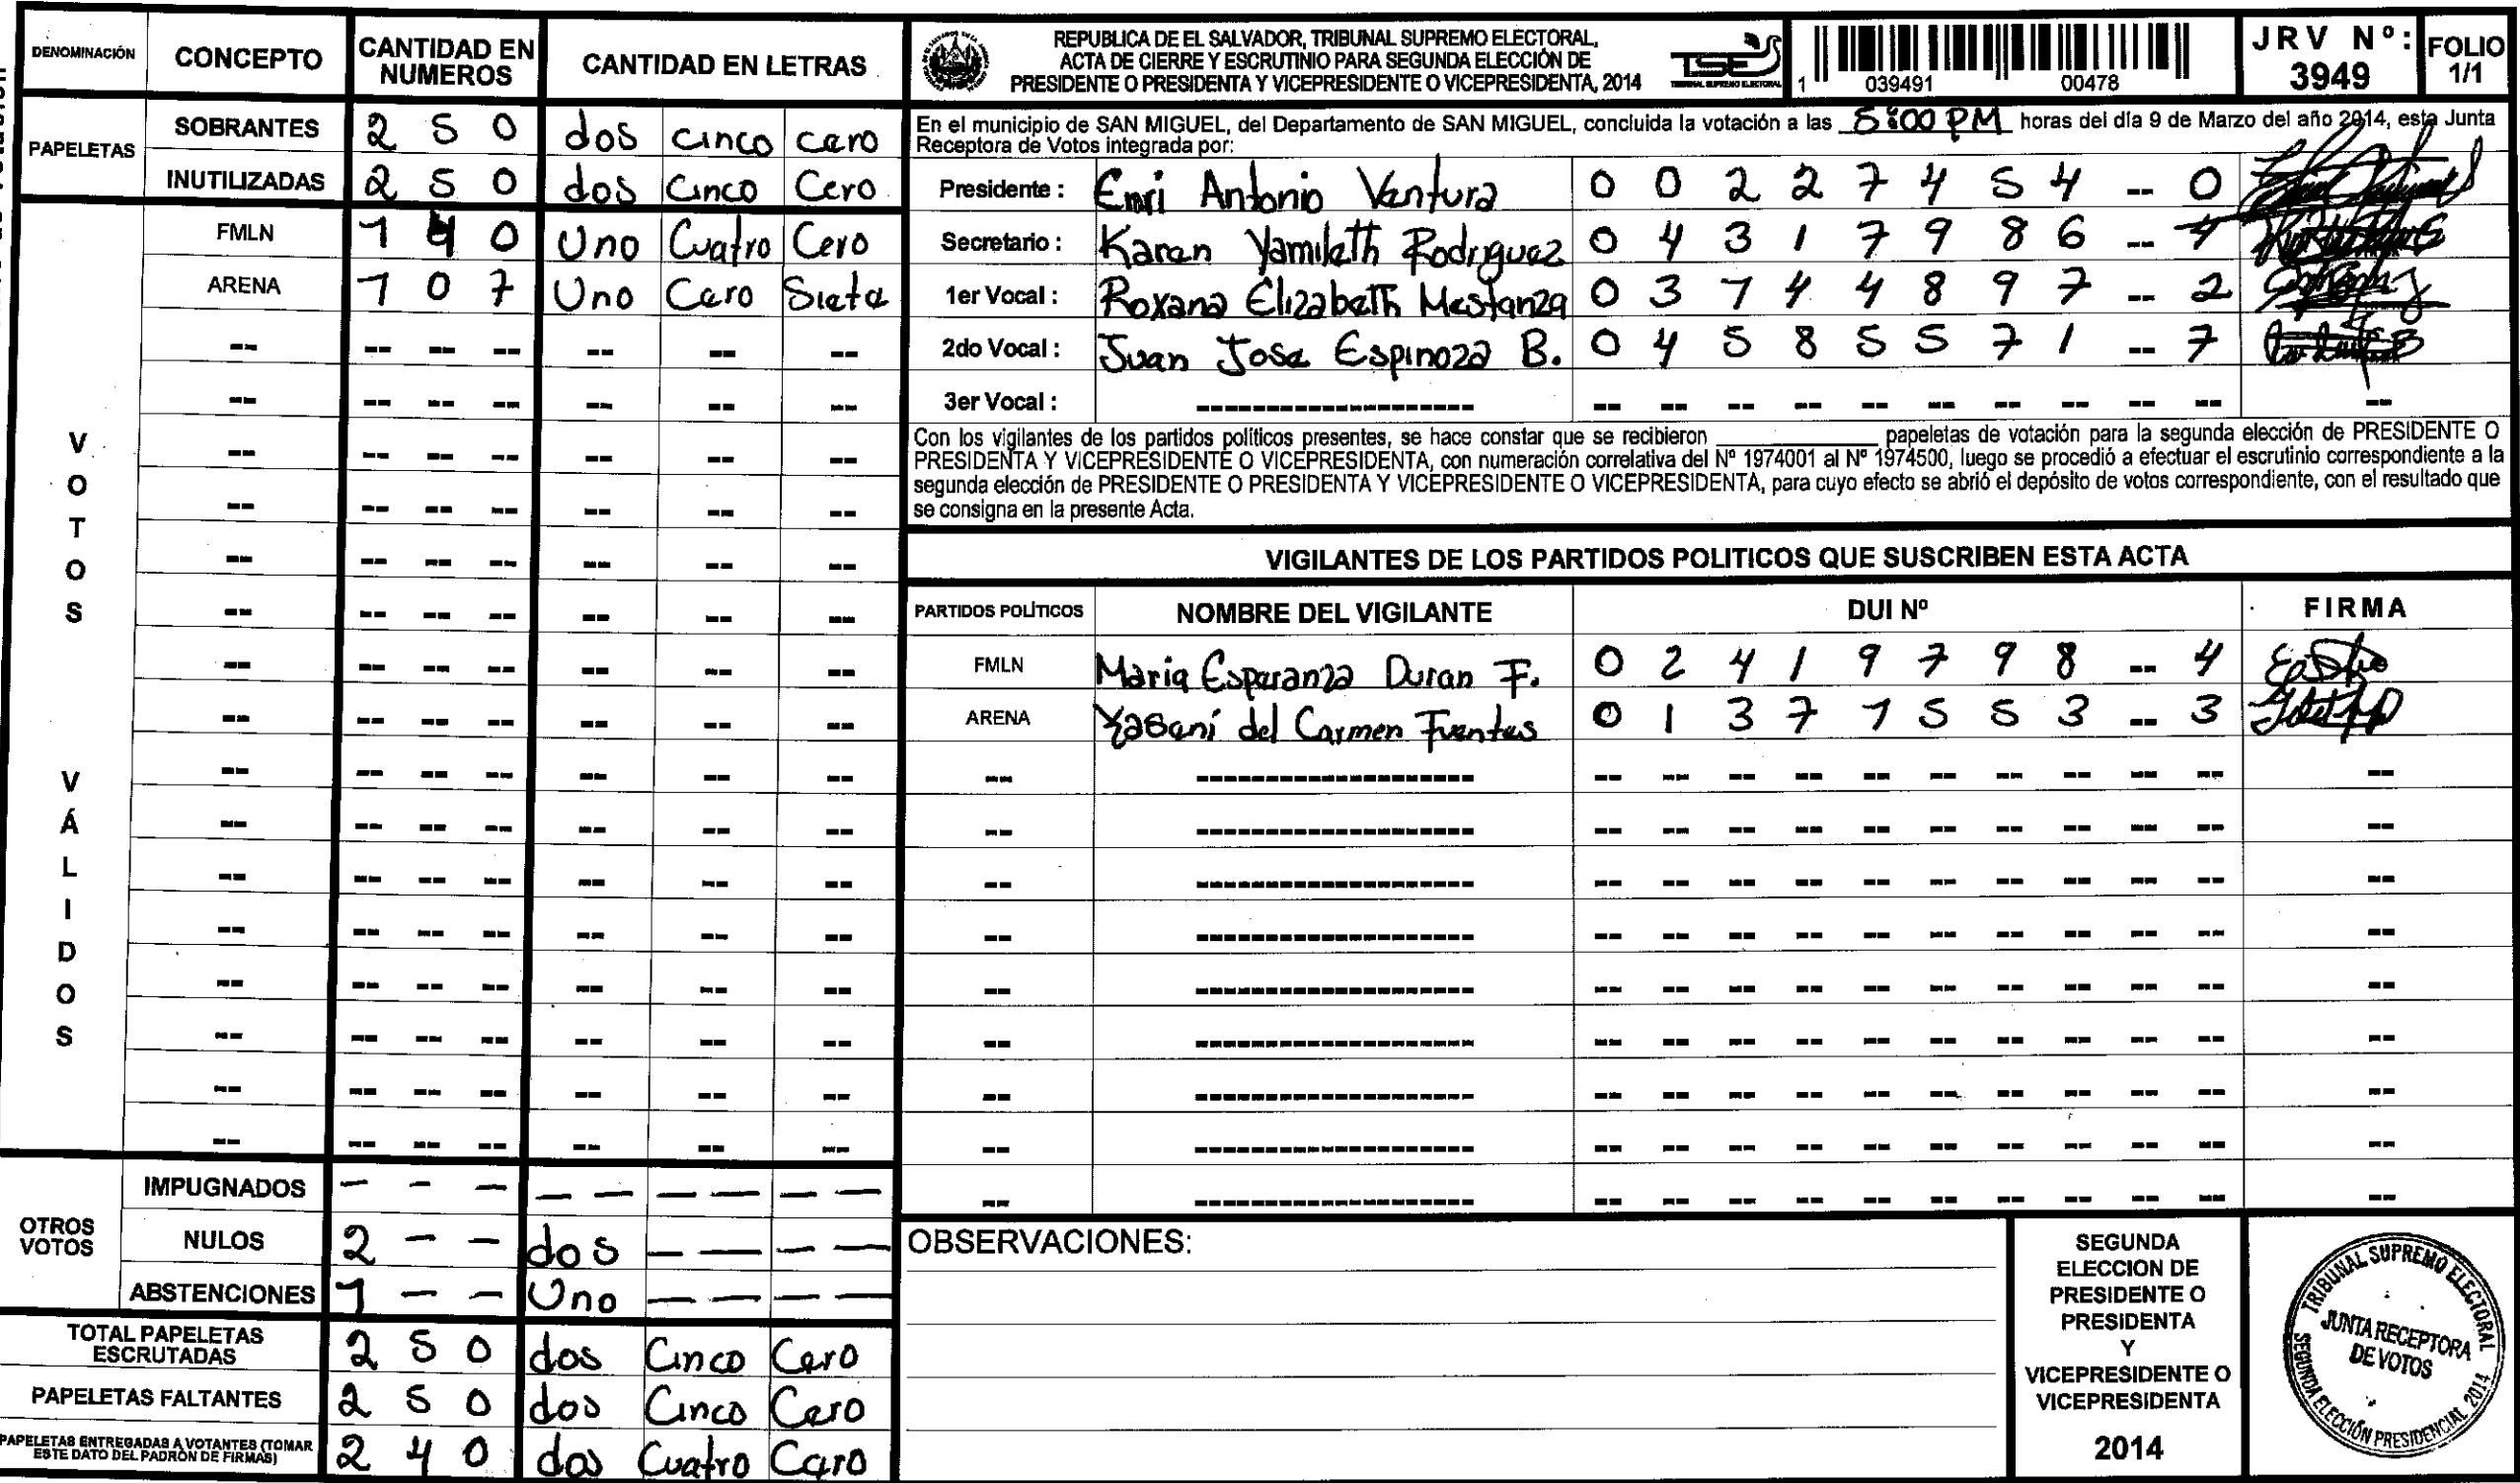 DENOMINACIÓN CONCEPTO CANTIDAD EN NUMEROS CANTIDAD EN LETRAS
PAPELETAS
SOBRANTES 2 5 0 dos cinco cero
INUTILIZADAS 2 5 0 dos Cinco Cero
VOTOS VÁLIDOS
FMLN 1 4 0 Uno Cuatro Cero
ARENA 1 0 7 Uno Cero Siete
OTROS VOTOS
IMPUGNADOS - - - — — — — — —
NULOS 2 - - dos — — — —
ABSTENCIONES 1 - - Uno — — — —
TOTAL PAPELETAS ESCRUTADAS 2 5 0 dos Cinco Cero
PAPELETAS FALTANTES 2 5 0 dos Cinco Cero
PAPELETAS ENTREGADAS A VOTANTES (TOMAR ESTE DATO DEL PADRÓN DE FIRMAS) 2 4 0 dos Cuatro Cero
REPUBLICA DE EL SALVADOR, TRIBUNAL SUPREMO ELECTORAL,
ACTA DE CIERRE Y ESCRUTINIO PARA SEGUNDA ELECCIÓN DE
PRESIDENTE O PRESIDENTA Y VICEPRESIDENTE O VICEPRESIDENTA, 2014
TSE
TRIBUNAL SUPREMO ELECTORAL
1 039491 00478
JRV Nº: 3949
FOLIO 1/1
En el municipio de SAN MIGUEL, del Departamento de SAN MIGUEL, concluida la votación a las 5:00 PM horas del día 9 de Marzo del año 2014, esta Junta
Receptora de Votos integrada por:
Presidente : Enri Antonio Ventura 0 0 2 2 7 4 5 4 -- 0
Secretario : Karen Yamileth Rodriguez 0 4 3 1 7 9 8 6 --
1er Vocal : Roxana Elizabeth Mestanza 0 3 7 4 4 8 9 7 -- 2
2do Vocal : Juan Jose Espinoza B. 0 4 5 8 5 5 7 1 -- 7
3er Vocal : -- -- -- -- -- -- -- -- -- --
Con los vigilantes de los partidos políticos presentes, se hace constar que se recibieron ____________ papeletas de votación para la segunda elección de PRESIDENTE O
PRESIDENTA Y VICEPRESIDENTE O VICEPRESIDENTA, con numeración correlativa del Nº 1974001 al Nº 1974500, luego se procedió a efectuar el escrutinio correspondiente a la
segunda elección de PRESIDENTE O PRESIDENTA Y VICEPRESIDENTE O VICEPRESIDENTA, para cuyo efecto se abrió el depósito de votos correspondiente, con el resultado que
se consigna en la presente Acta.
VIGILANTES DE LOS PARTIDOS POLITICOS QUE SUSCRIBEN ESTA ACTA
PARTIDOS POLÍTICOS NOMBRE DEL VIGILANTE DUI Nº FIRMA
FMLN Maria Esperanza Duran F. 0 2 4 1 9 7 9 8 -- 4
ARENA del Carmen Fuentes 0 1 3 7 1 5 5 3 -- 3
OBSERVACIONES:
SEGUNDA
ELECCION DE
PRESIDENTE O
PRESIDENTA
Y
VICEPRESIDENTE O
VICEPRESIDENTA
2014
TRIBUNAL SUPREMO ELECTORAL
JUNTA RECEPTORA
DE VOTOS
SEGUNDA ELECCIÓN PRESIDENCIAL 2014